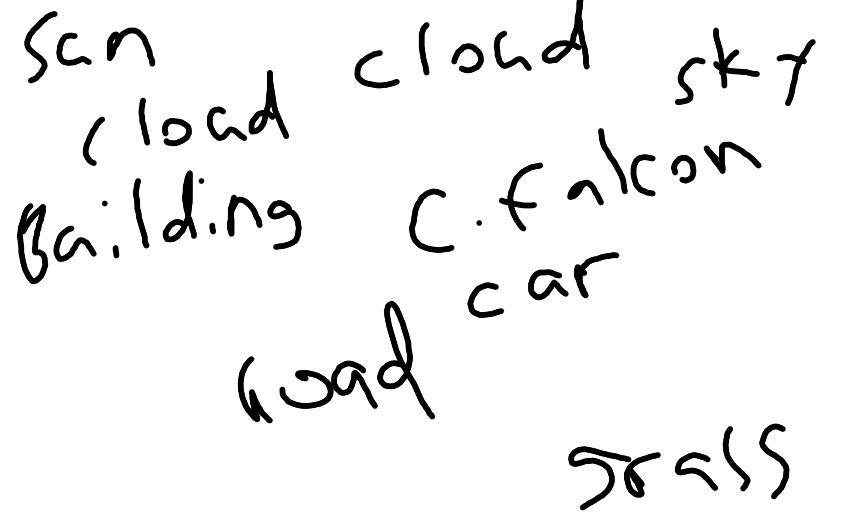 sun cloud sky
cloud
Building C. falcon
car
road
grass